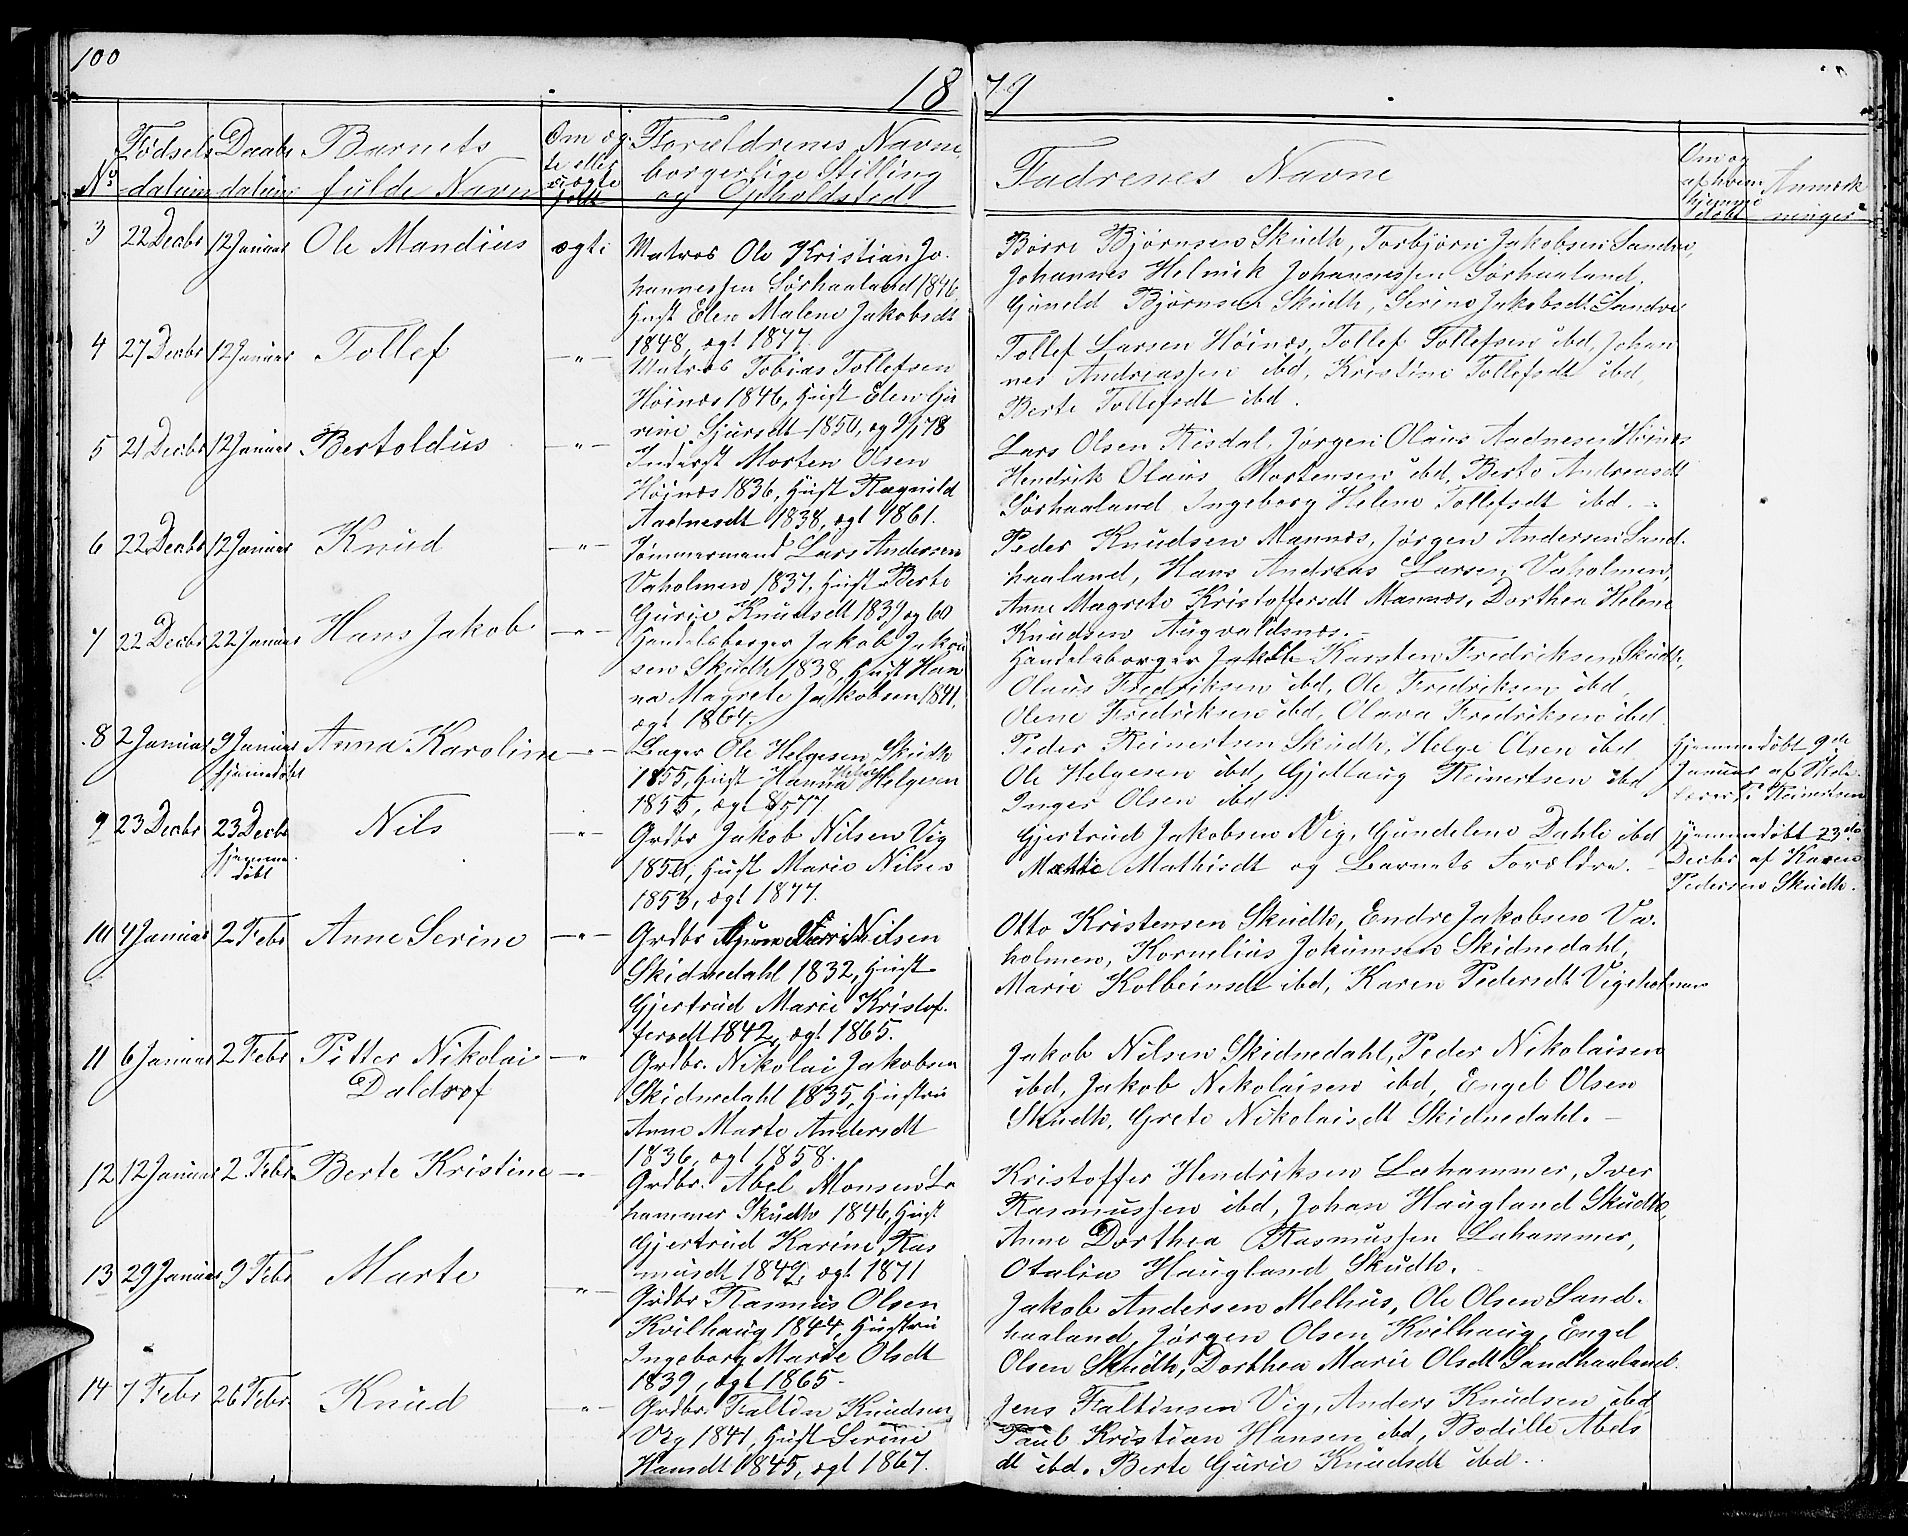 100
18 79
No
Fødsels datum
Daabs datum
Barnets fulde Navn
Om ægte eller uægte født
Forældrenes Navne, borgerlige Stilling og Opholdsted
Fadrenes Navne
Om og af hvem hjemmedøbt
Anmærkninger
3 22 Decbr 12 Januar Ole Mandius ægte
Matros Ole Kristian Jo-
hannessen Sørhaaland 1846,
Hust Elen Malene Jakobsdt
1848, ægt 1877.
Børre Bjørnsen Skudh, Torbjørn Jakobsen Sandve,
Johannes Helmik Johannessen Sørhaaland,
Guneld Bjørnsen Skudh, Serine Jakobsdt Sandve
4 27 Decbr 12 Januar Tollef -"-
Matros Tobias Tollefsen
Høinæs 1846, Hust Elen Gu
rine Sjursdt 1850, æg 9/1 78
Tollef Larsen Høinæs, Tollef Tollefsen ibd, Johan
nes Andreassen ibd, Kristine Tollefsdt ibd,
Berte Tollefsdt ibd.
5 21 Decbr 12 Januar Bertoldus -"-
Inderst Morten Olsen
Høinæs 1836, Hust Ragnild
Aadnesdt 1838, ægt 1861.
Lars Olsen Risdal, Jørgen Olaus Aadnesen Høinæs
Hendrik Olaus Mortensen ibd, Berte Andreasdt
Sørhaaland, Ingeborg Helene Tollefsdt ibd. -
6 22 Decbr 12 Januar Knud -"-
Tømmermand Lars Andersen
Vaholmen 1837, Hust Berte
Gurie Knudsdt 1839 æg 60
Peder Knudsen Mannæs, Jørgen Andersen Sand-
haaland, Hans Andreas Larsen Vaholmen,
Anne Magrete Kristoffersdt Mannæs, Dorthea Helene
Knudsen Augvaldsnæs. -
7 22 Decbr 22 Januar Hans Jakob -"-
Handelsborger Jakob Jakob
sen Skudh 1838, Hust Han
na Magrete Jakobsen 1841,
ægt 1864.
Handelsborger Jakob Karsten Fredriksen Skudh,
Olaus Fredriksen ibd, Ole Fredriksen ibd,
Olene Fredriksen ibd, Olava Fredriksen ibd
8 2 Januar 9 Januar hjemmedøbt Anna Karoline -"-
Bager Ole Helgesen Skudh
1855, Hust Hanna Helgesen
1855, ægt 1877
Peder Reinertsen Skudh, Helge Olsen ibd
Ole Helgesen ibd, Gjellaug Reinertsen ibd
Inger Olsen ibd
Hjemmedøbt 9de
Januar af Skole
lærer Reinertsen
9 23 Decbr 23 Decbr hjemmedøbt Nils -"-
Grdbr Jakob Nilsen Vig
1850, Hust Marie Nilsen
1853, ægt 1877.
Gjertrud Jakobsen Vig, Gundelene Dahle ibd
Mathisdt og Barnets Forældre. -
Hjemmedøbt 23de
Decbr af Karen
Pedersen Skudh.
10 4 Januar 2 Febr Anne Serine -"-
Grdbr Nilsen
Skidnedahl 1832, Hust
Gjertrud Marie Kristof-
fersdt 1842, ægt 1865.
Otto Kristensen Skudh, Endre Jakobsen Va-
holmen, Kornelius Jokumsen Skidnedahl,
Marie Kolbeinsdt ibd, Karen Pedersdt Vigsholmen
11 6 Januar 2 Febr Pitter Nikolai Daldrof -"-
Grdbr. Nikolai Jakobsen
Skidnedahl 1835, Hustru
Anne Marte Andersdt
1836, ægt 1858.
Jakob Nilsen Skidnedahl, Peder Nikolaisen
ibd, Jakob Nikolaisen ibd, Engel Olsen
Skudh, Grete Nikolaisdt Skidnedahl. -
12 12 Januar 2 Febr Berte Kristine -"-
Grdbr. Abel Monsen La
hammer Skudh 1846, Hust
Gjertrud Karine Ras
musdt 1849, ægt 1871
Kristoffer Hendriksen Lahammer, Iver
Rasmussen ibd, Johan Haugland Skudh,
Anne Dorthea Rasmussen Lahammer,
Otalia Haugland Skudh.
13 29 Januar 9 Febr Marte -"-
Grdbr Rasmus Olsen
Kvilhaug 1844, Hustru
Ingeborg Marie Olsdt
1839, ægt 1865.
Jakob Andersen Melhus, Ole Olsen Sand-
haaland, Jørgen Olsen Kvilhaug, Engel
Olsen Skudh, Dorthea Marie Olsdt Sandhaaland.
14 7 Febr 26 Febr Knud -"-
Grdbr. Faltin Knudsen
Vig 1841, Hust Serine
Hansdt 1845, ægt 1867.
Jens Faltinsen Vig, Anders Knudsen ibd
Paul Kristian Hansen ibd, Bodille Abels
dt ibd. Berte Gurie Knudsdt ibd.